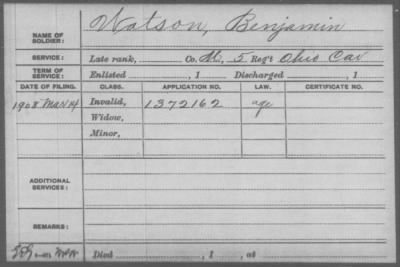 NAME OF SOLDIER: Watson, Benjamin
SERVICE: Late rank, Co. M, 5 Reg't Ohio Cav
TERM OF SERVICE: Enlisted , 1 Discharged , 1
DATE OF FILING. CLASS. APPLICATION NO. LAW. CERTIFICATE NO.
1908 Mar 14 Invalid, 1372162 age
Widow,
Minor,
ADDITIONAL SERVICES:
REMARKS:
Died , 1 , at